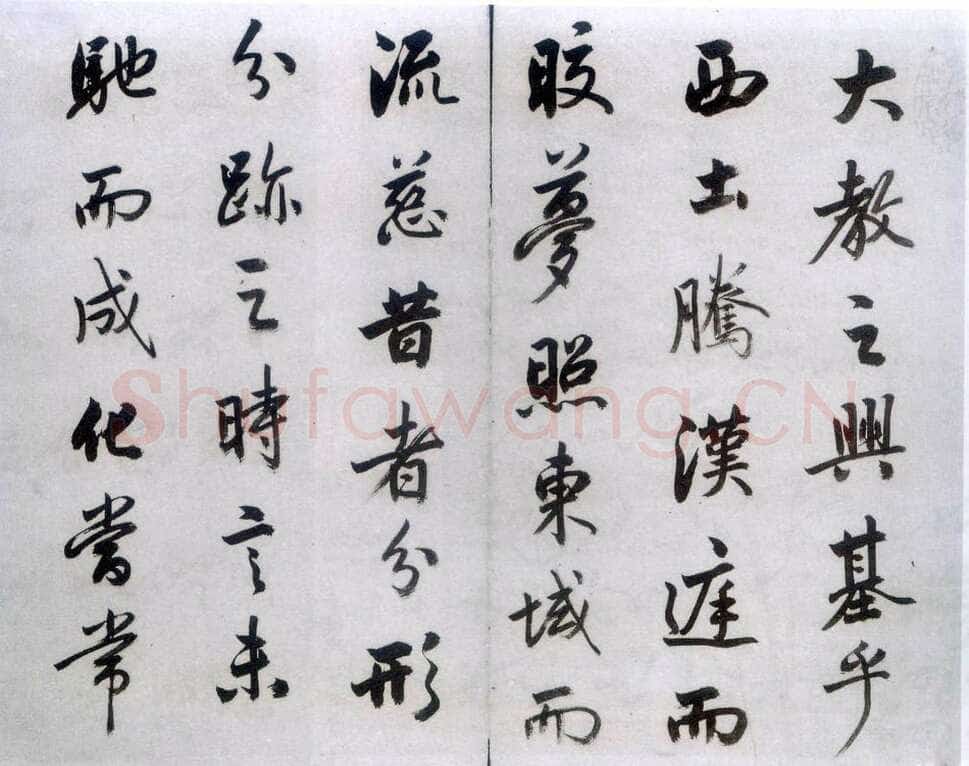 大教之興基乎
西土騰漢遅而
皎夢照東域而
流慈昔者分形
分跡之時言未
馳而成化當常
Shufawang.CN